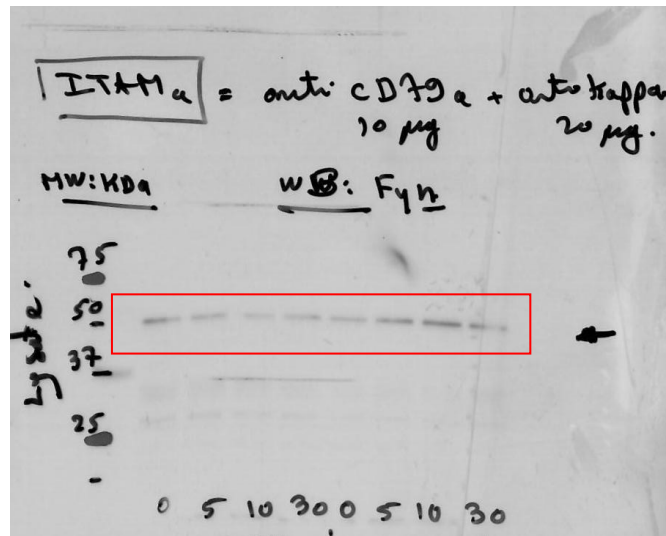 ITAMa = anti CD79a + anti kappa
10 µg 20 µg.
MW: KDa WB: Fyn
75
50
37
25
-
0 5 10 30 0 5 10 30